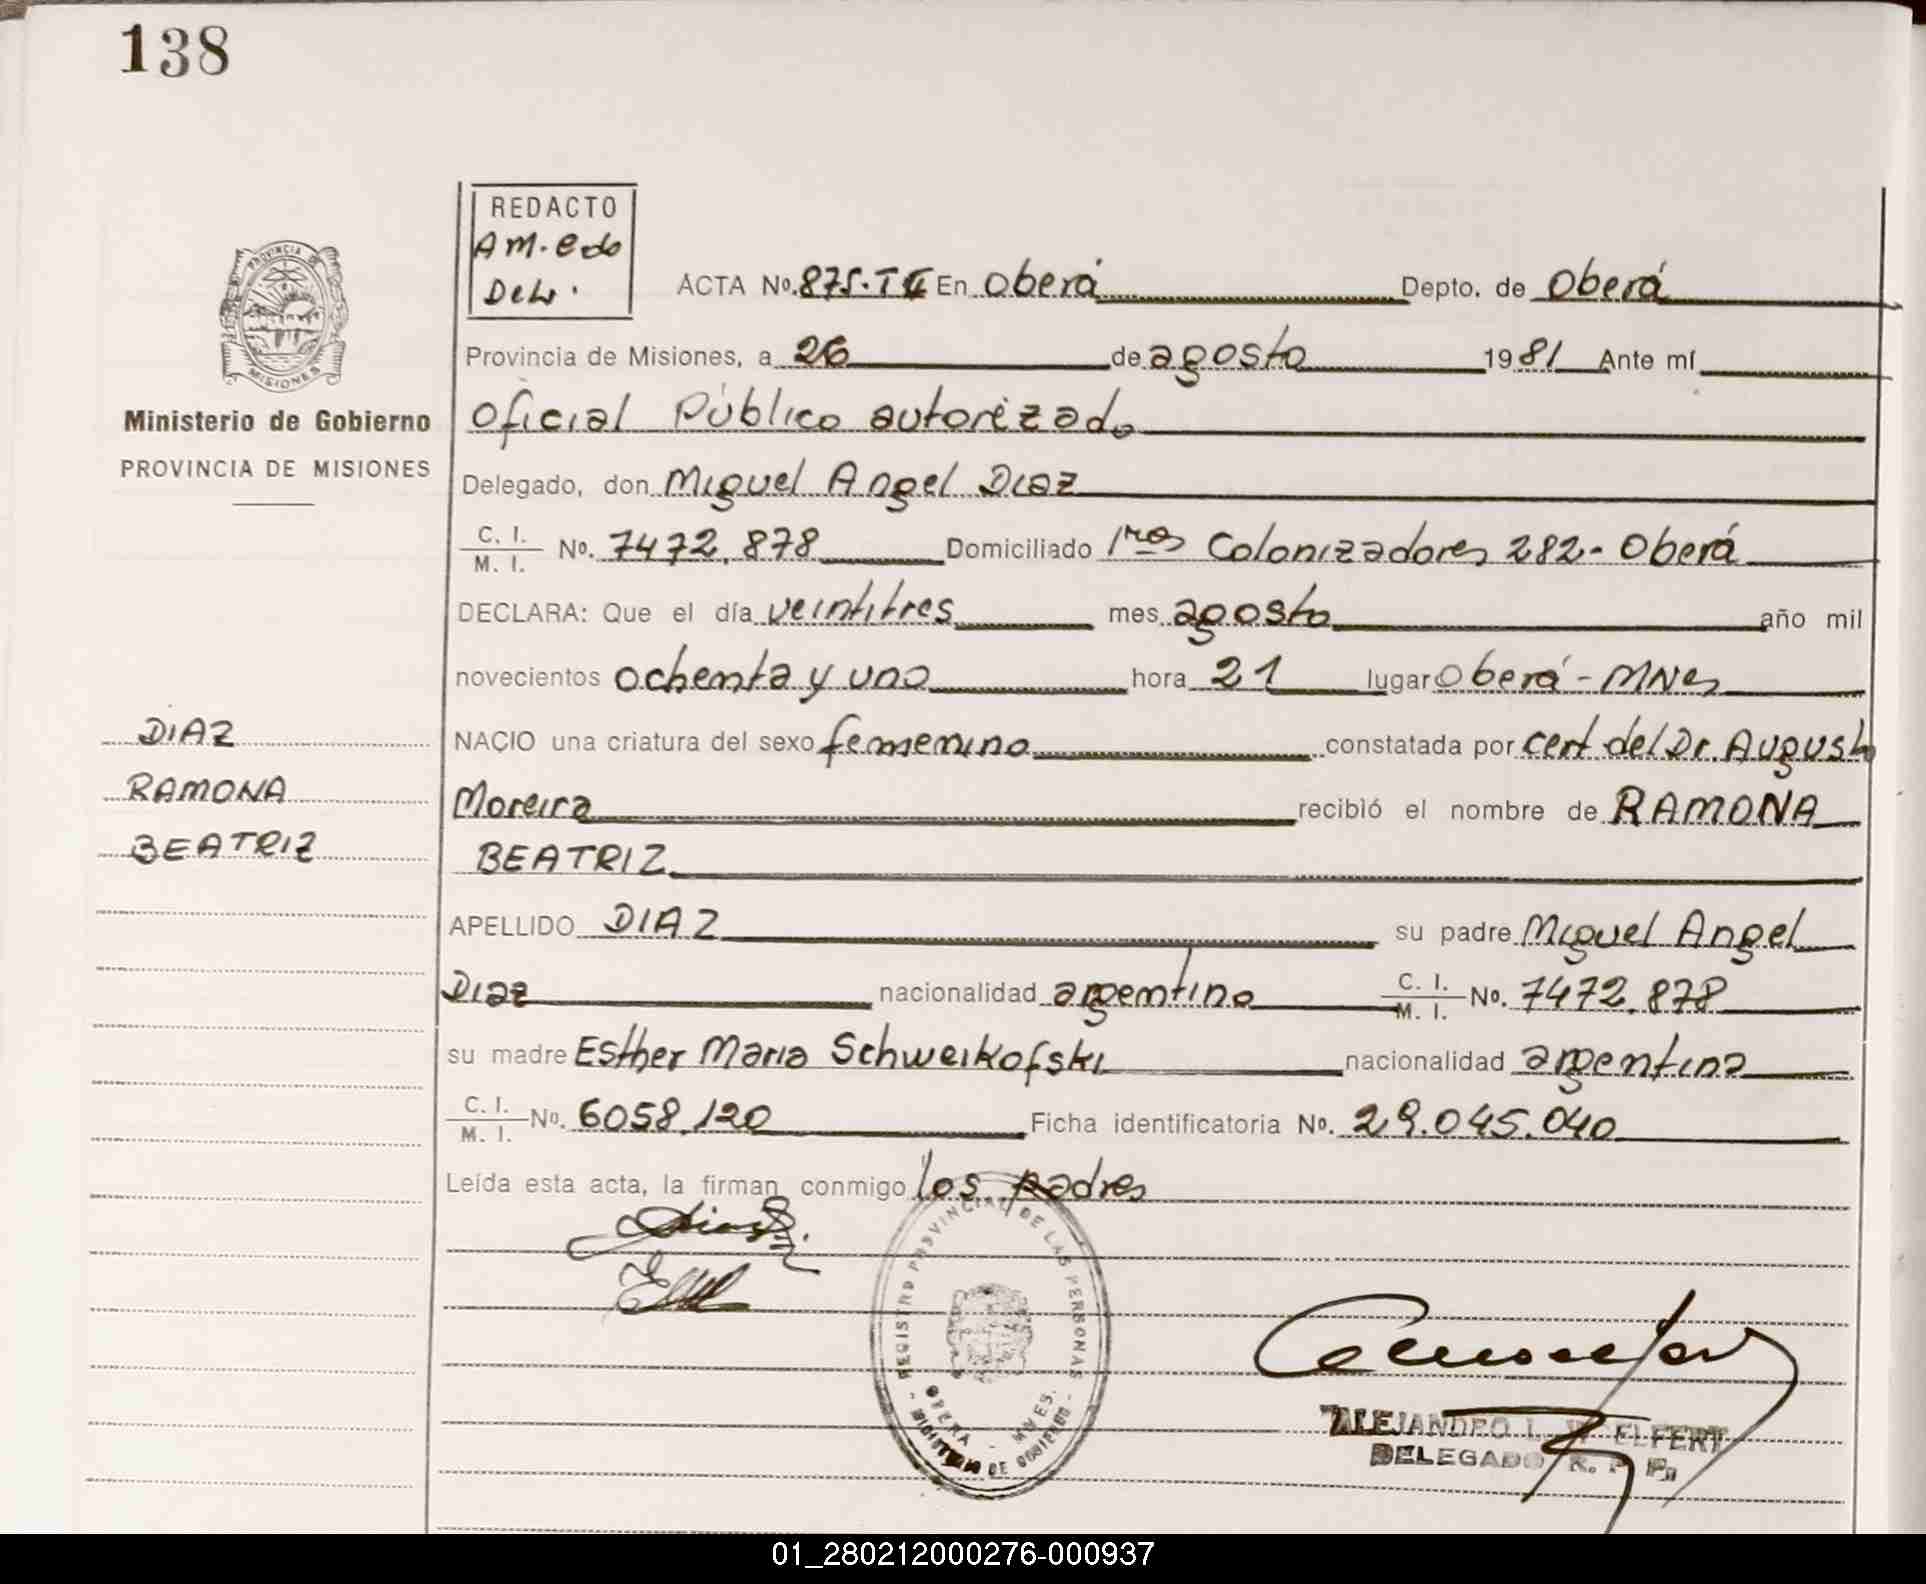 138
REDACTO
Am. edo
Del.
PROVINCIA DE
MISIONES
Ministerio de Gobierno
PROVINCIA DE MISIONES
ACTA No. 875. En Oberá Depto. de Oberá
Provincia de Misiones, a 26 de agosto 1981 Ante mí
Oficial Público autorizado
Delegado, don Miguel Angel Diaz
C. I.
M. I. No. 7472.878 Domiciliado 1ros Colonizadores 282- Oberá
DECLARA: Que el día veintitres mes agosto año mil
novecientos ochenta y uno hora 21 lugar Oberá - MNes
DIAZ
RAMONA
BEATRIZ
NACIO una criatura del sexo femenino constatada por cert del Dr. Augusto
Moreira recibió el nombre de RAMONA
BEATRIZ
APELLIDO DIAZ su padre Miguel Angel
Diaz nacionalidad argentino C. I. M. I. No. 7472.878
su madre Esther Maria Schweikofski nacionalidad argentina
C. I.
M. I. No. 6058.120 Ficha identificatoria No. 29.045.040
Leída esta acta, la firman conmigo los padres
REGISTRO PROVINCIAL DE LAS PERSONAS
OBERA - MNES.
MINISTERIO DE GOBIERNO
ALEJANDRO L. W. ELFERT
DELEGADO R. P. P.
01_280212000276-000937